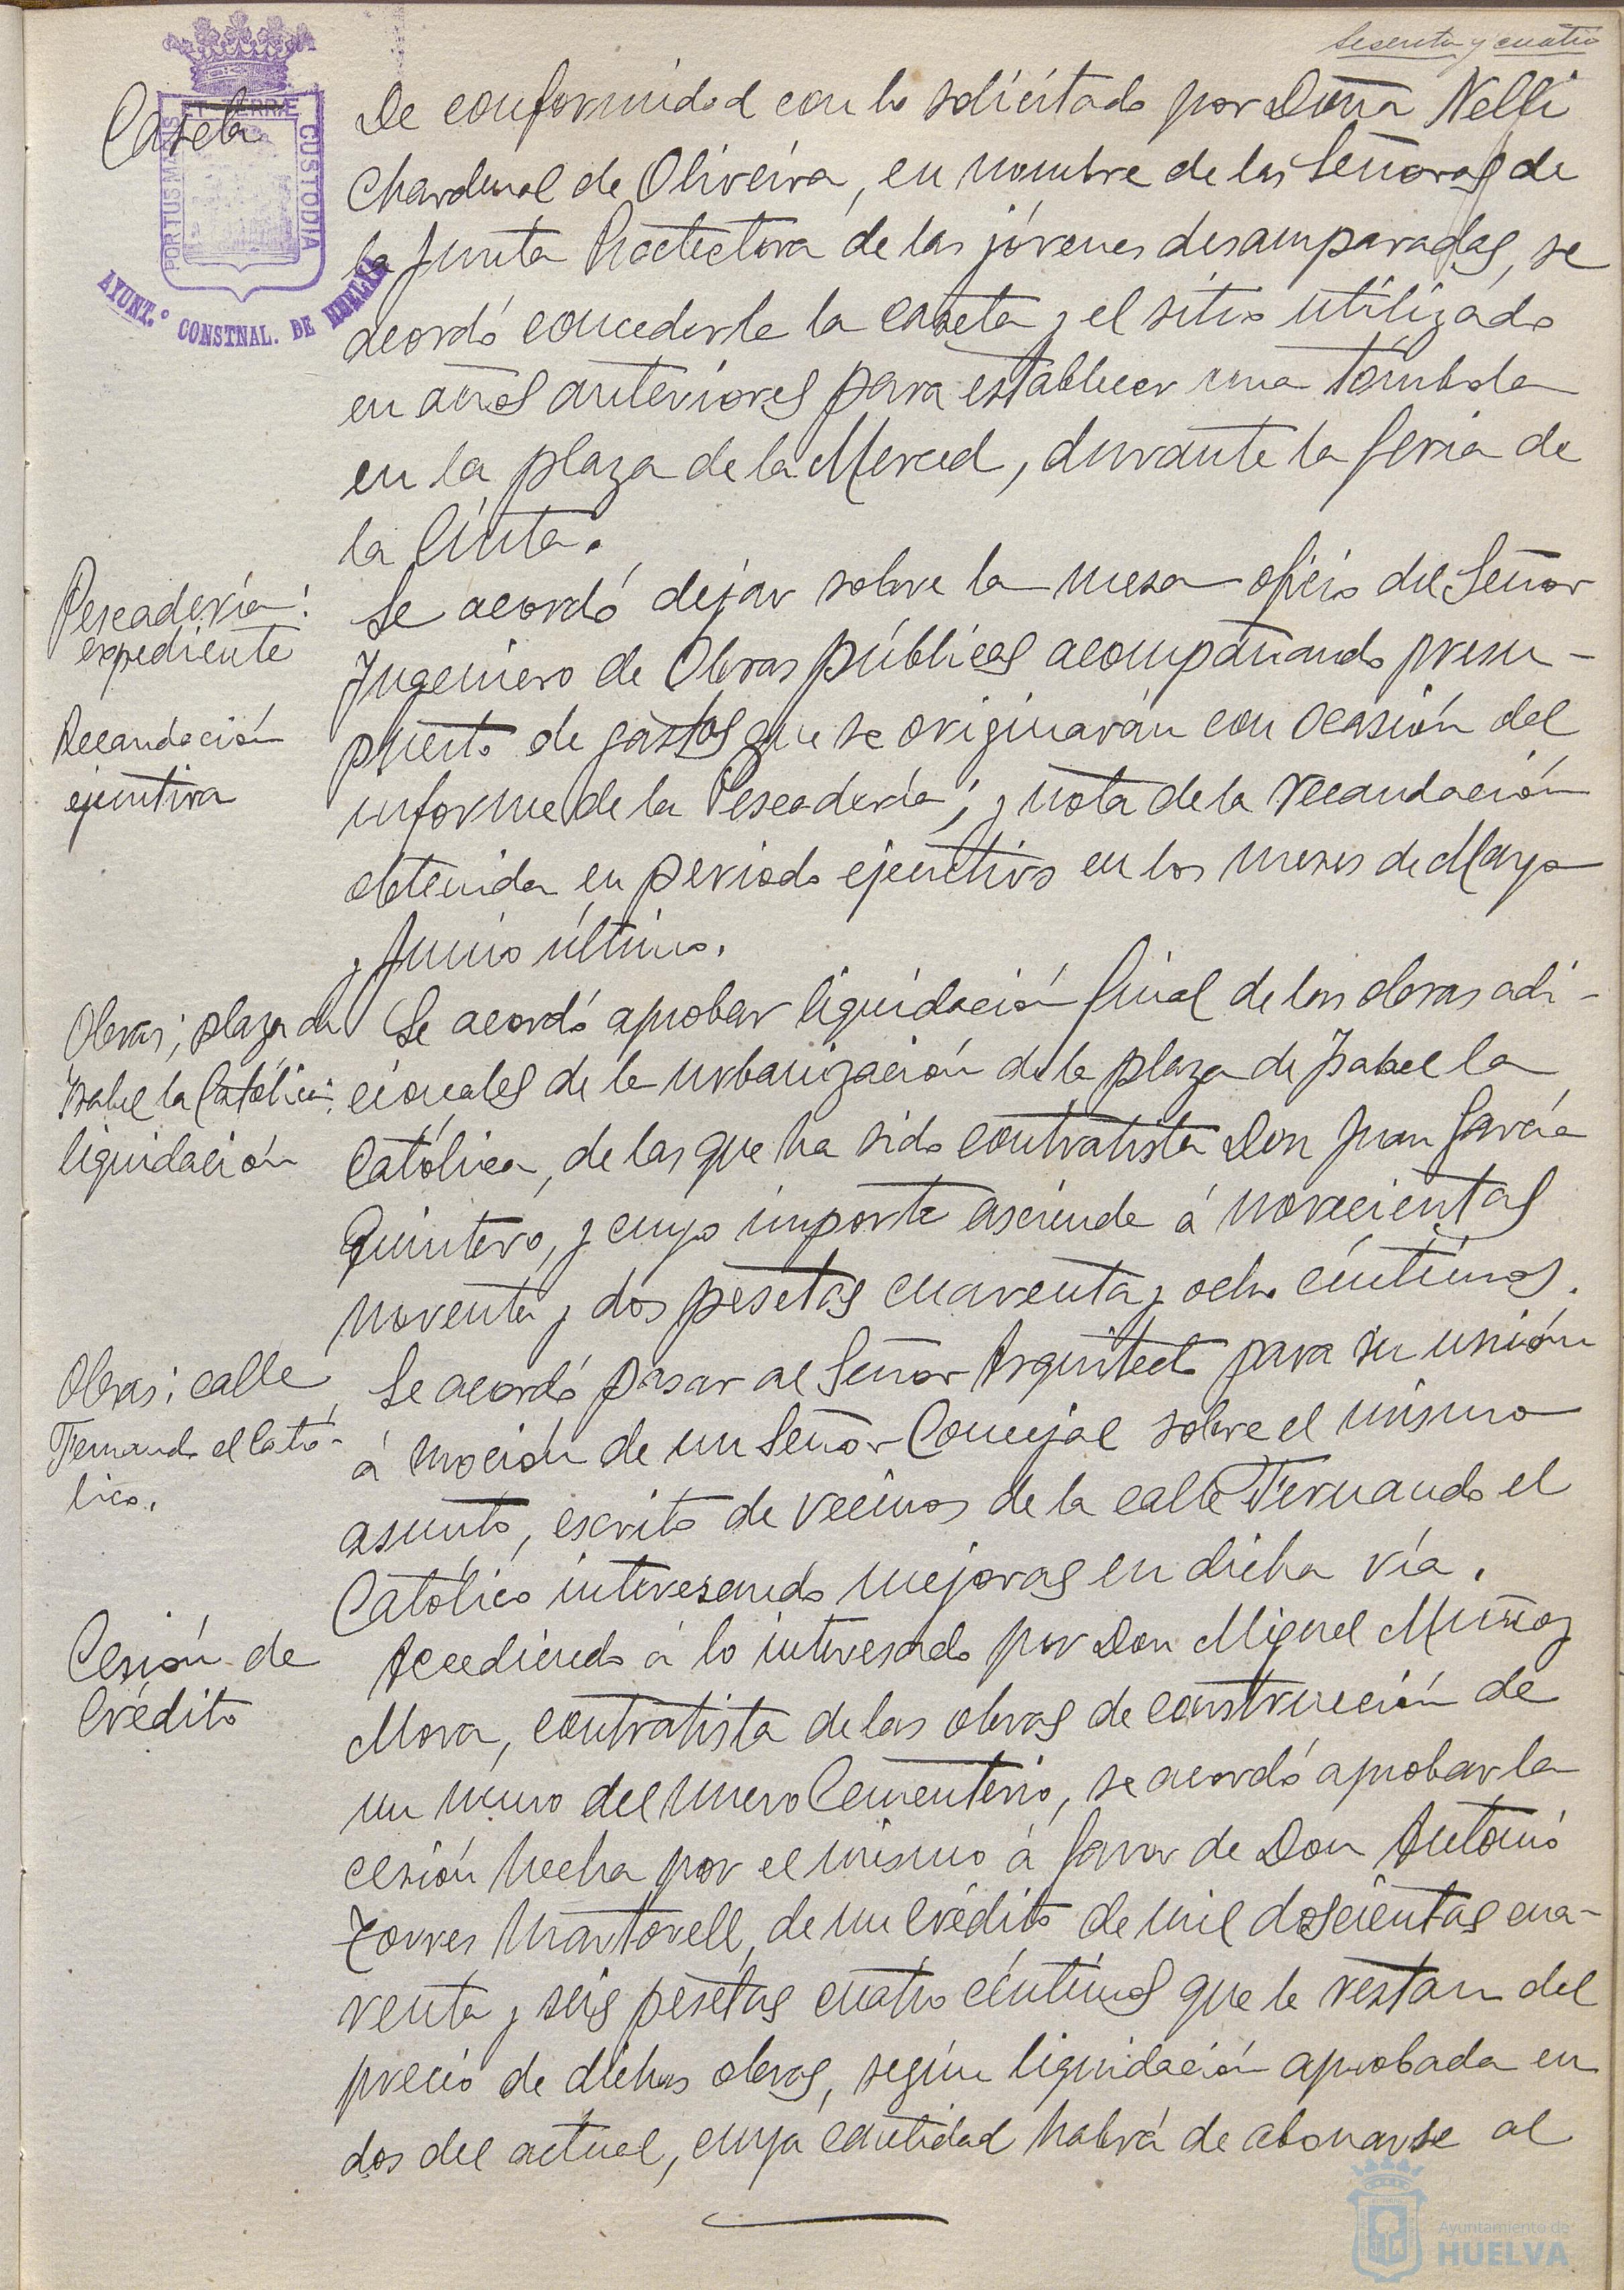 Sesenta y cuatro
Caseta
ET TERRÆ
PORTUS MARIS
CUSTODIA
AYUNT.º CONSTNAL. DE HUELVA
De conformidad con lo solicitado por Doña Nelli
Chardenal de Oliveira, en nombre de las Señoras de
la Junta Protectora de las jóvenes desamparadas, se
acordó concederle la caseta y el sitio utilizado
en años anteriores para establecer una tómbola
en la plaza de la Merced, durante la feria de
la Cinta.
Pescadería:
expediente
Se acordó dejar sobre la mesa oficio del Señor
Ingeniero de Obras públicas acompañando presu-
puesto de gastos que se originarán con ocasión del
informe de la Pescadería; y nota de la recaudación
obtenida en periodo ejecutivo en los meses de Mayo
y Junio último.
Recaudación
ejecutiva
Obras; plaza de
Isabel la Católica:
liquidación
Se acordó aprobar liquidación final de las obras adi-
cionales de la urbanización de la plaza de Isabel la
Católica, de las que ha sido contratista Don Juan García
Quintero, y cuyo importe asciende á novecientas
noventa y dos pesetas cuarenta y ocho céntimos.
Obras: calle
Fernando el Cató-
lico.
Se acordó pasar al Señor Arquitecto para su unión
á moción de un Señor Concejal sobre el mismo
asunto, escrito de vecinos de la calle Fernando el
Católico interesando mejoras en dicha vía.
Cesión de
Crédito
Accediendo á lo interesado por Don Miguel Muñoz
Mora, contratista de las obras de construcción de
un muro del nuevo Cementerio, se acordó aprobar la
cesión hecha por el mismo á favor de Don Antonio
Torres Martorell, de un crédito de mil doscientas cua-
renta y seis pesetas cuatro céntimos que le restan del
precio de dichas obras, según liquidación aprobada en
dos del actual, cuya cantidad habrá de abonarse al
Ayuntamiento de
HUELVA